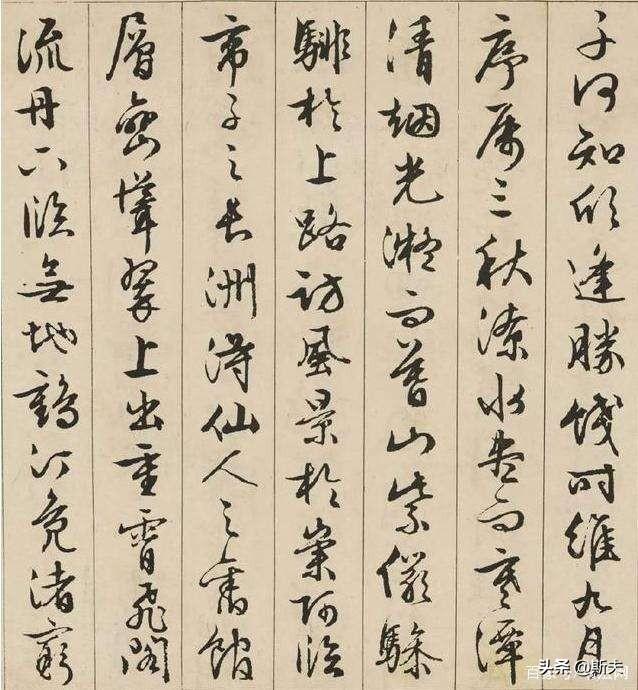 子何知欣逢勝餞时維九月
序属三秋潦水尽而寒潭
清烟光凝而暮山紫儼驂
騑於上路訪風景於崇阿臨
帝子之長洲得仙人之舊館
層巒聳翠上出重霄飛閣
流丹下臨無地鶴汀鳧渚窮
头条 @斯夫